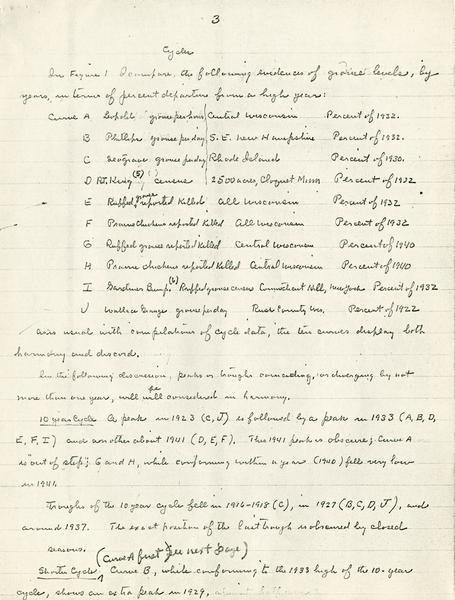 3
Cycles
In Figure 1 I compare the following evidences of grouse levels, by
years, in terms of percent departure from a high year:
Curve A Leopold grouse per hour Central Wisconsin Percent of 1932.
B Phillips grouse per day S.E. New Hampshire Percent of 1932.
C Seagrave grouse per day Rhode Island Percent of 1930.
D R.T. King (5) census 2500 acres, Cloquet Minn Percent of 1932
E Ruffed grouse reported killed All Wisconsin Percent of 1932
F Prairie chickens reported killed All Wisconsin Percent of 1932
G Ruffed grouse reported killed Central Wisconsin Percent of 1940
H Prairie chickens reported killed Central Wisconsin Percent of 1940
I Gardiner Bump (6) Ruffed grouse census Connecticut Hill, New York Percent of 1932
J Wallace Grange grouse per day County Wis. Percent of 1922
As is usual with compilations of cycle data, the ten curves display both
harmony and discord.
In the following discussion, peaks or troughs coinciding, or diverging by not
more than one year, will be considered in harmony.
10 year Cycle A peak in 1923 (C, J) is followed by a peak in 1933 (A, B, D,
E, F, I) and another about 1941 (D, E, F). This 1941 peak is obscure; Curve A
is "out of step"; G and H, while conforming within a year (1940) fell very low
in 1941.
Troughs of the 10 year cycle fell in 1916-1918 (C), in 1927 (B, C, D, J), and
around 1937. The exact position of the last trough is obscured by closed
seasons.
(Curve A first See next page)
Shorter Cycle ^ Curve B, while conforming to the 1933 high of the 10-year
cycle, shows an extra peak in 1929,